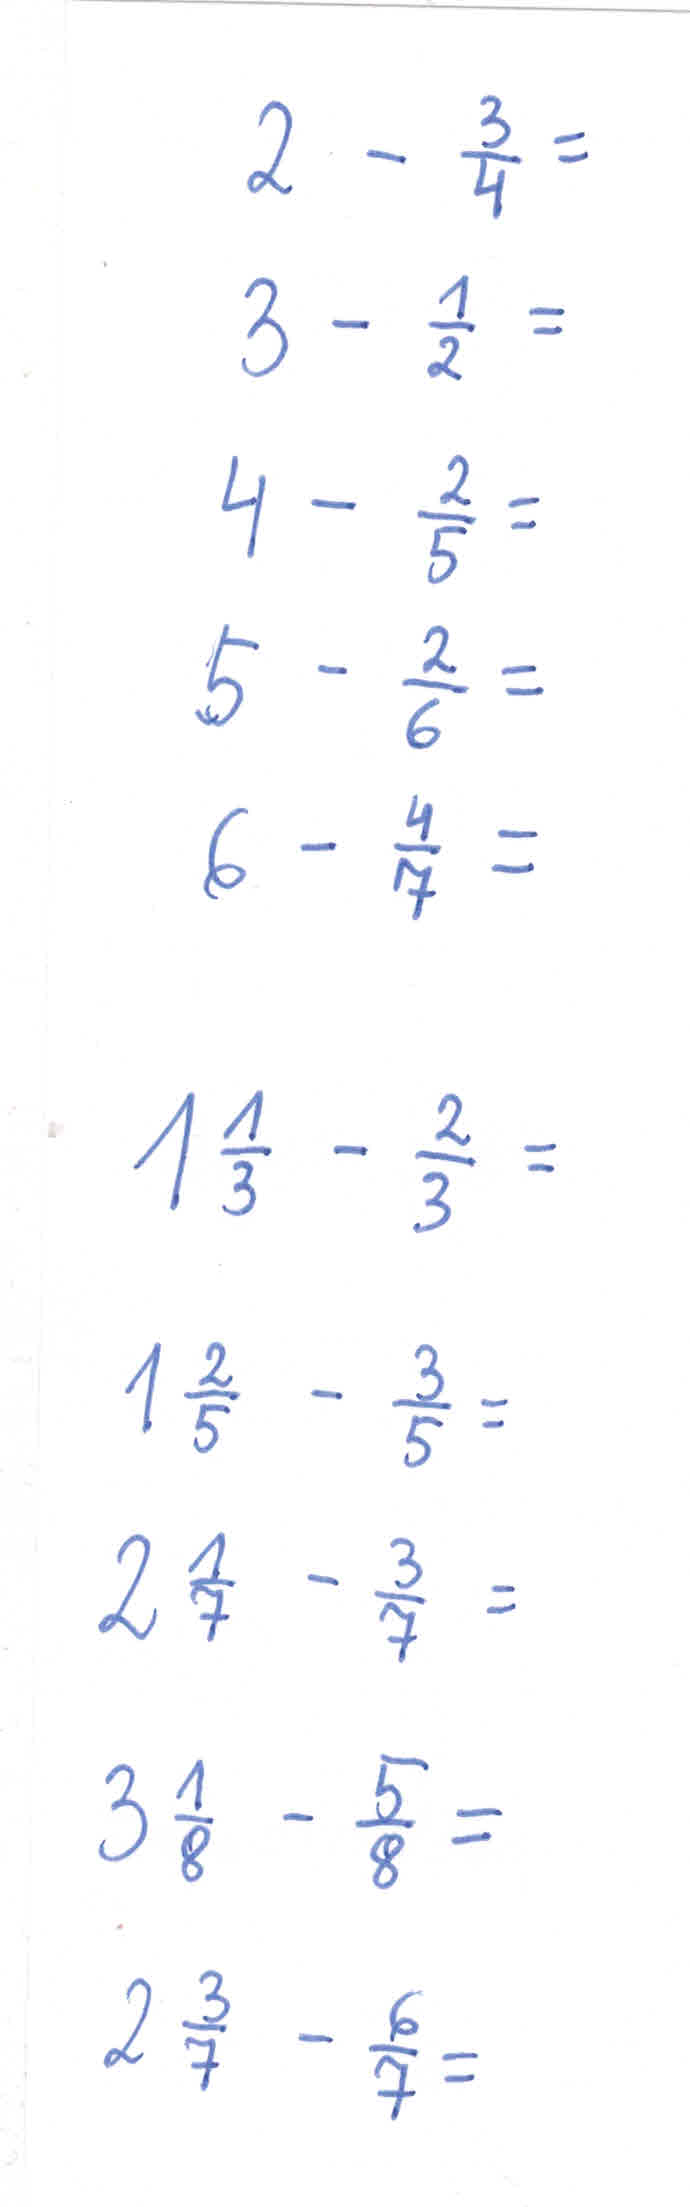 2 - 3/4 =
3 - 1/2 =
4 - 2/5 =
5 - 2/6 =
6 - 4/7 =
1 1/3 - 2/3 =
1 2/5 - 3/5 =
2 1/7 - 3/7 =
3 1/8 - 5/8 =
2 3/7 - 6/7 =